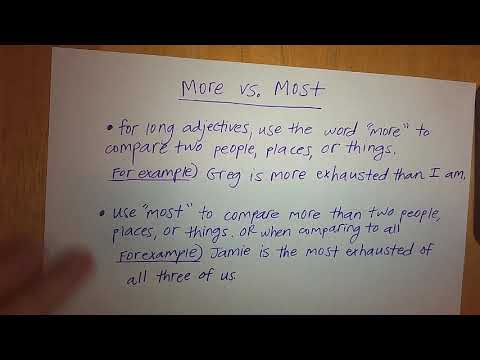 More vs. Most
• for long adjectives, use the word "more" to
compare two people, places, or things.
For example) Greg is more exhausted than I am.
• use "most" to compare more than two people,
places, or things. OR when comparing to all
For example) Jamie is the most exhausted of
all three of us.